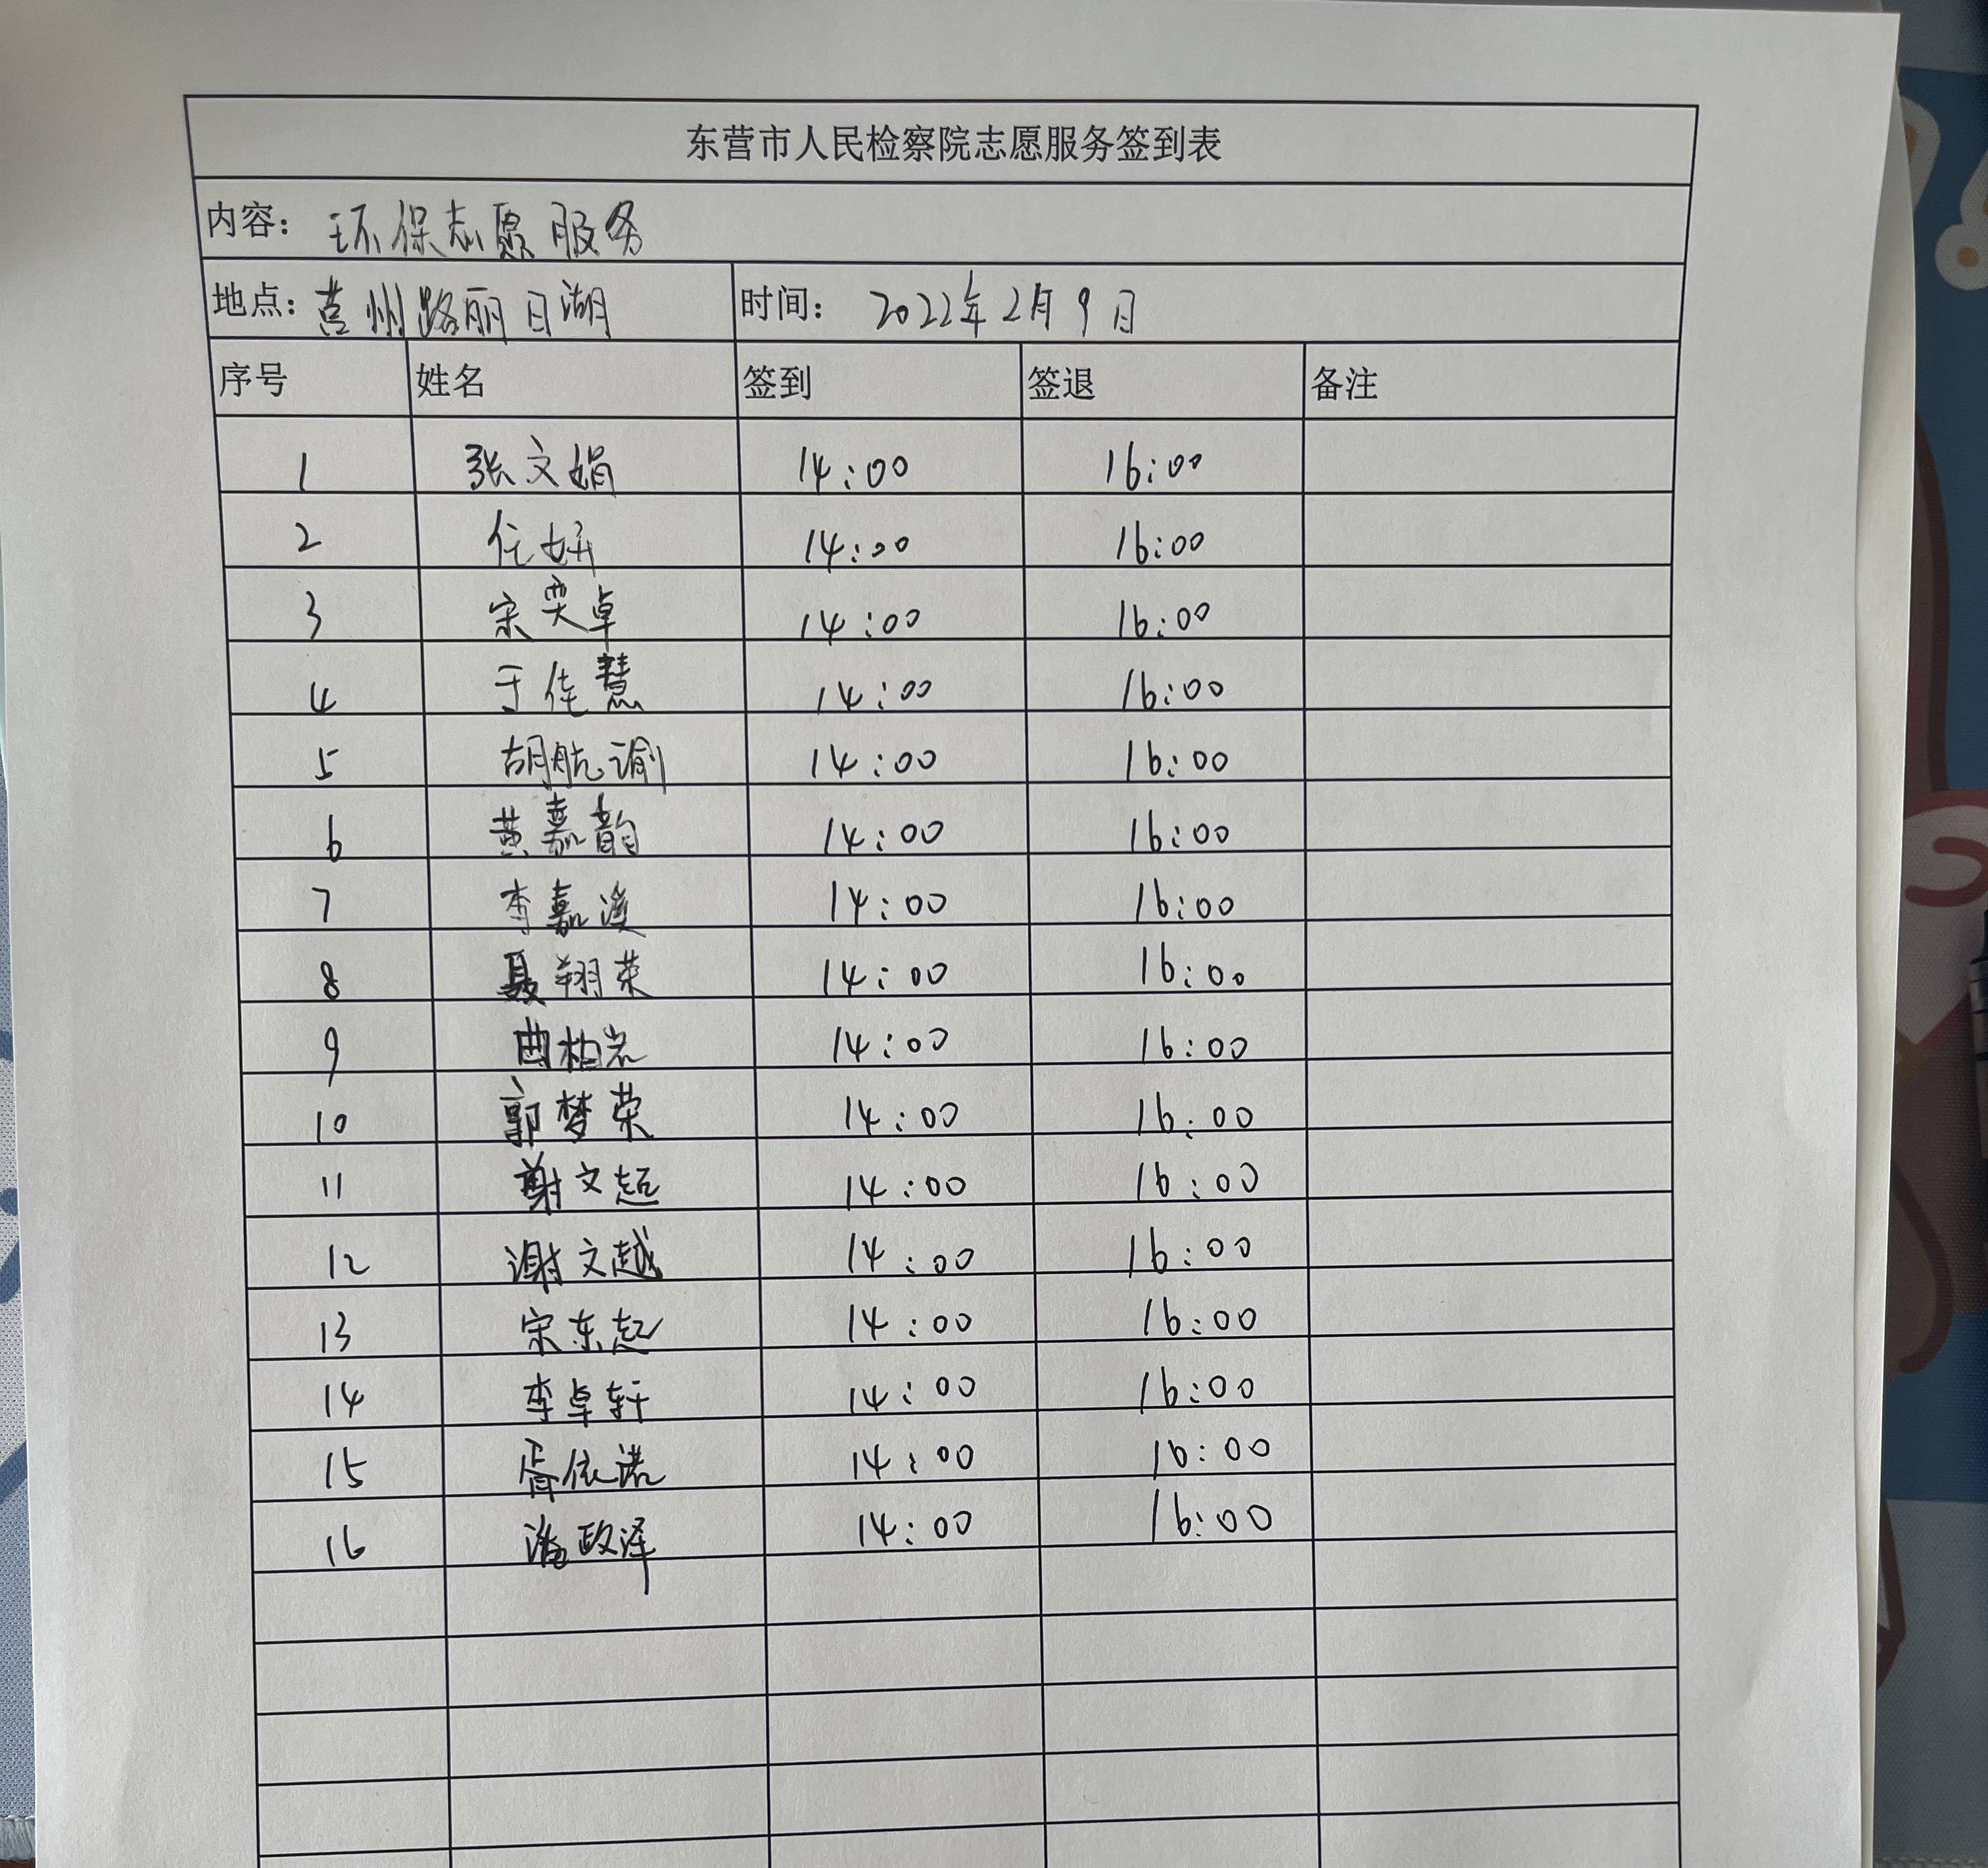 东营市人民检察院志愿服务签到表
内容： 环保志愿服务
地点：莒州路丽日湖 时间： 2022年2月9日
序号 姓名 签到 签退 备注
1 张文娟 14:00 16:00
2 任妍 14:00 16:00
3 宋奕卓 14:00 16:00
4 于佳慧 14:00 16:00
5 胡航谕 14:00 16:00
6 黄嘉韵 14:00 16:00
7 李嘉浚 14:00 16:00
8 聂翔荣 14:00 16:00
9 曲柏岩 14:00 16:00
10 郭梦荣 14:00 16:00
11 谢文超 14:00 16:00
12 谢文越 14:00 16:00
13 宋东起 14:00 16:00
14 李卓轩 14:00 16:00
15 胥依诺 14:00 16:00
16 潘政泽 14:00 16:00